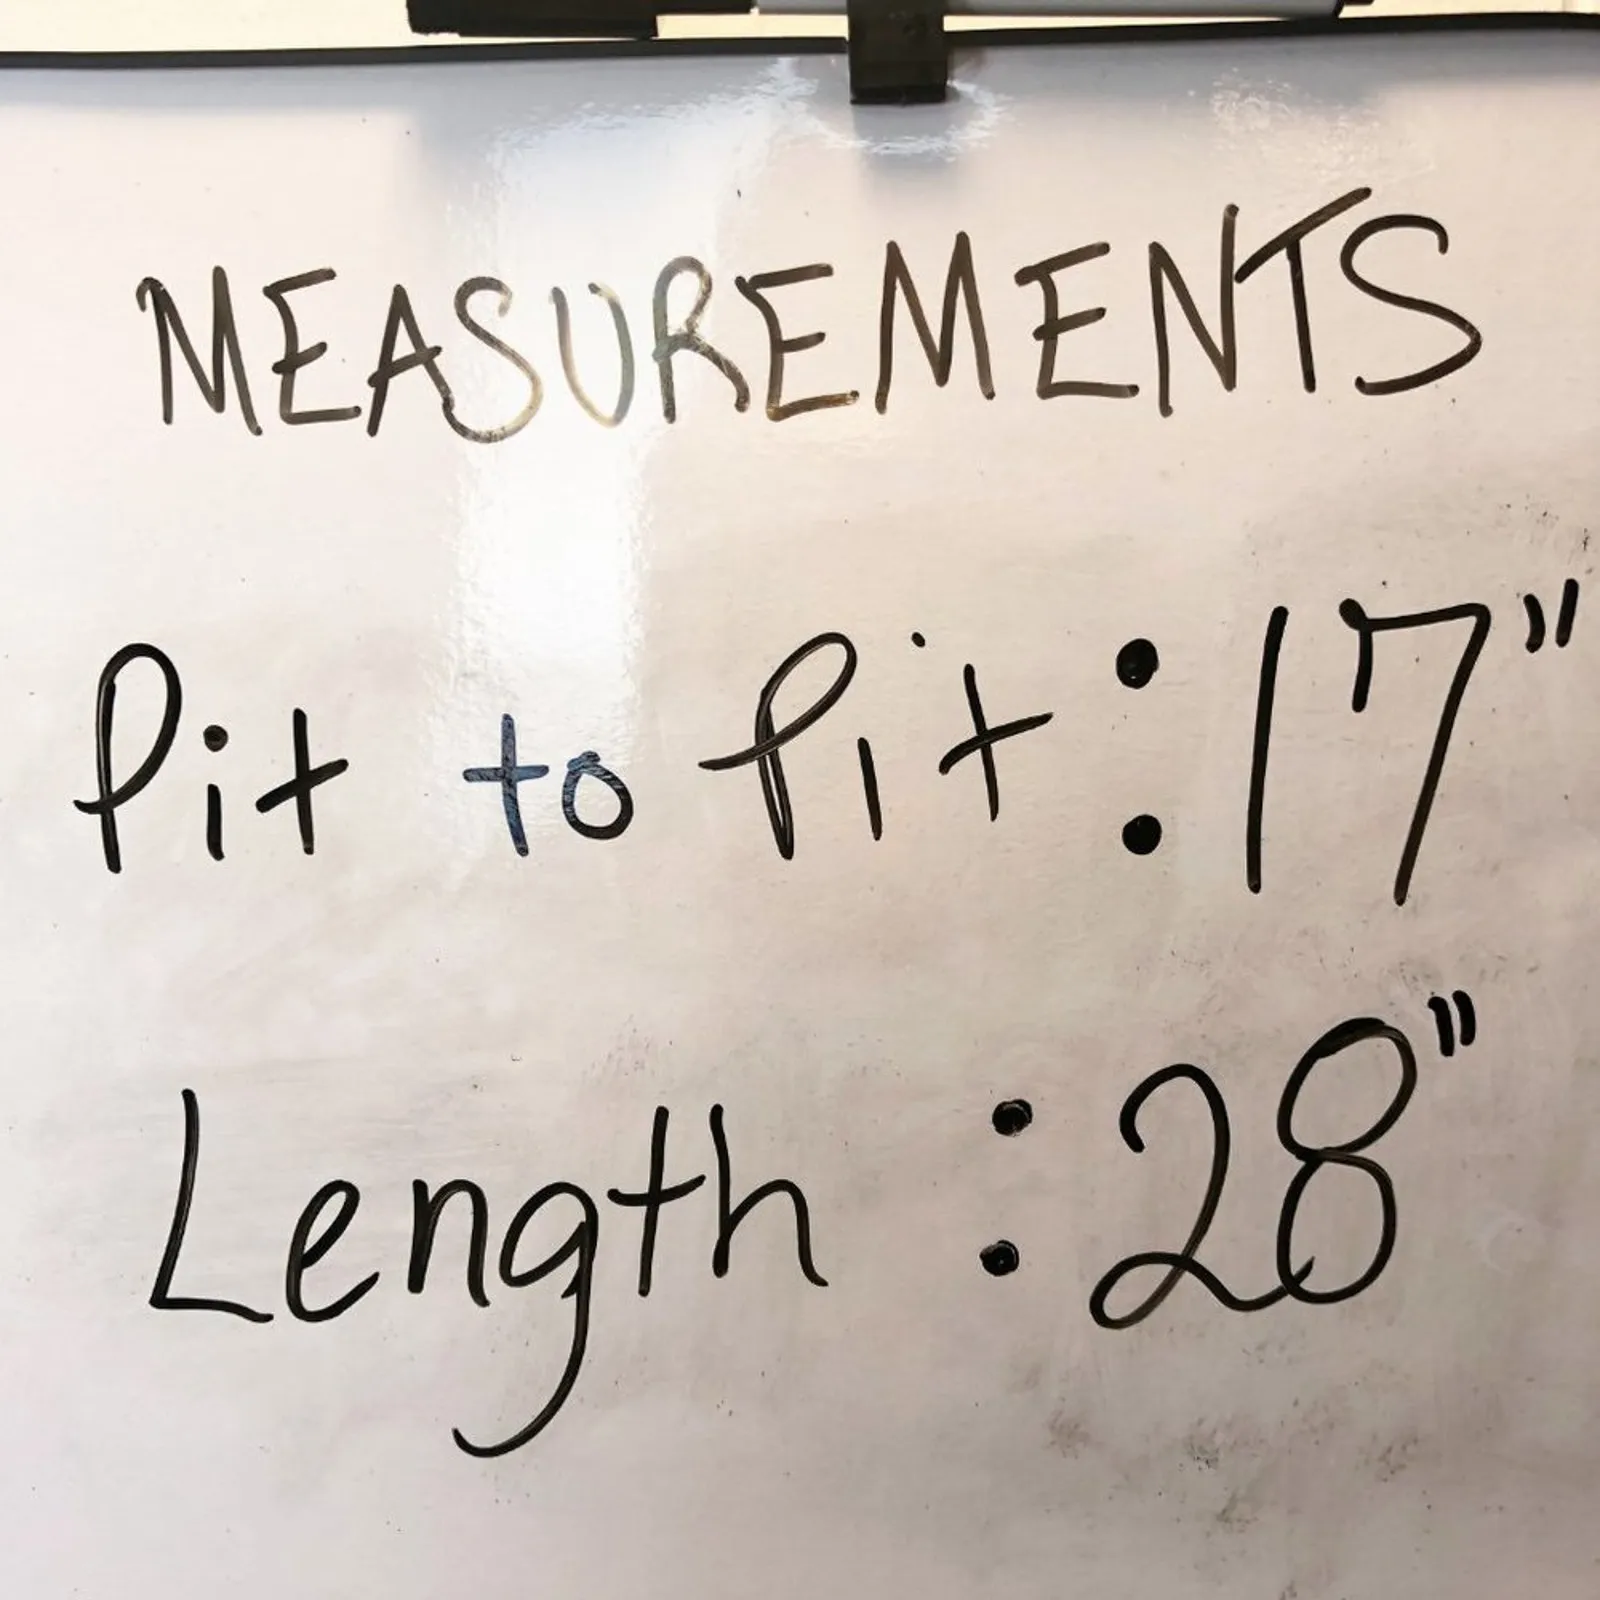 MEASUREMENTS
Pit to Pit : 17"
Length : 28"